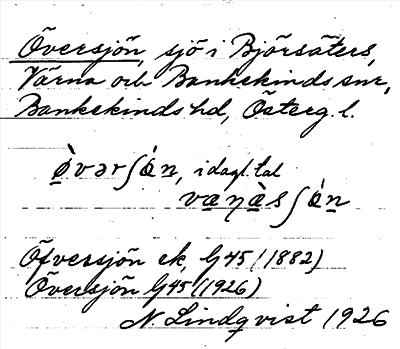 Översjön, sjö i Björsäters,
Värna och Bankekinds snr,
Bankekinds hd, Österg. l.
ø̀vərʃȯ́n, i dagl. tal
væŋæ̀sʃȯ́n
Öfversjön ek, G45 (1882)
Översjön G45 (1926)
N. Lindqvist 1926